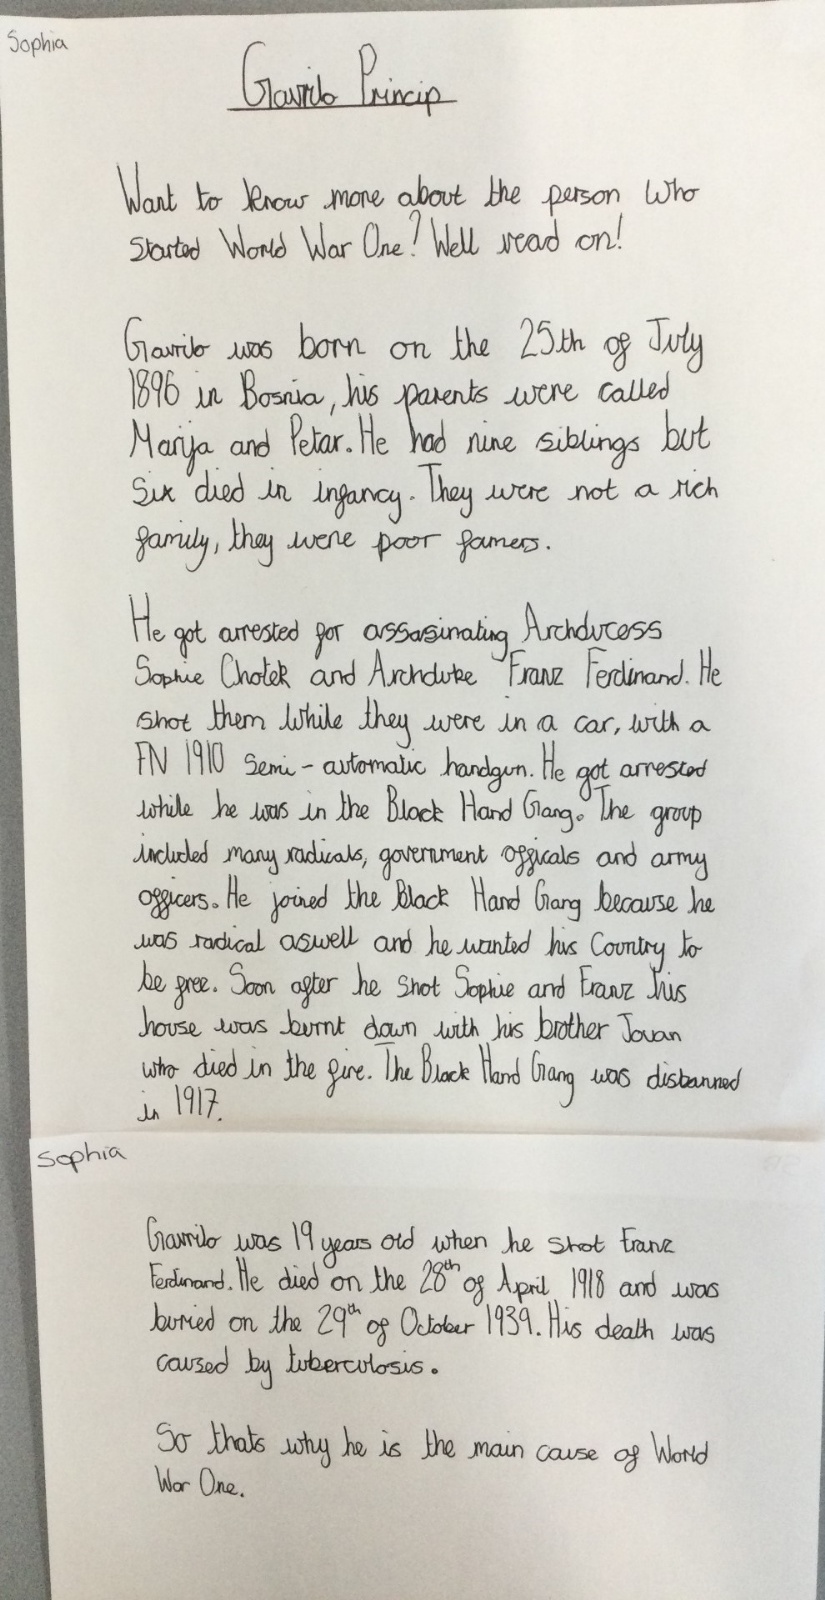 Sophia
Gavrilo Princip
Want to know more about the person who
started World War One? Well read on!
Gavrilo was born on the 25th of July
1896 in Bosnia, his parents were called
Marija and Petar. He had nine siblings but
six died in infancy. They were not a rich
family, they were poor famers.
He got arrested for assasinating Archducess
Sophie Chotek and Archduke Franz Ferdinand. He
shot them while they were in a car, with a
FN 1910 Semi-automatic handgun. He got arrested
while he was in the Black Hand Gang. The group
included many radicals, government officals and army
officers. He joined the Black Hand Gang because he
was radical aswell and he wanted his Country to
be free. Soon after he shot Sophie and Franz his
house was burnt down with his brother Jovan
who died in the fire. The Black Hand Gang was disbanned
in 1917.
Sophia
Gavrilo was 19 years old when he shot Franz
Ferdinand. He died on the 28th of April 1918 and was
buried on the 29th of October 1939. His death was
caused by tuberculosis.
So thats why he is the main cause of World
War One.